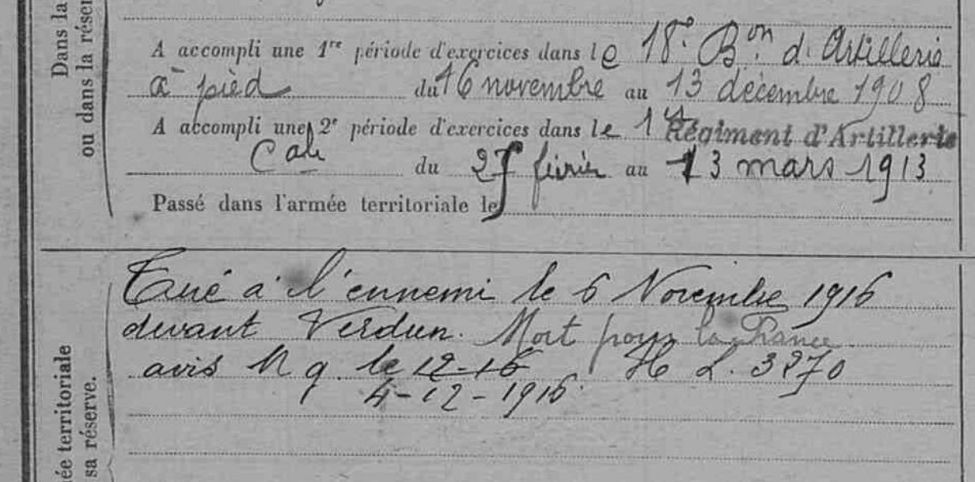 Dans la
ou dans la réser
A accompli une 1re période d'exercices dans le 18e Bon d'Artillerie
à pied du 16 novembre au 13 décembre 1908
A accompli une 2e période d'exercices dans le 1er Régiment d'Artillerie
du 27 février au 13 mars 1913
Passé dans l'armée territoriale le
ée territoriale
sa réserve.
Tué à l'ennemi le 6 Novembre 1916
devant Verdun. Mort pour la France
avis M q. le 12-16 L. 3270
4-12-1916.